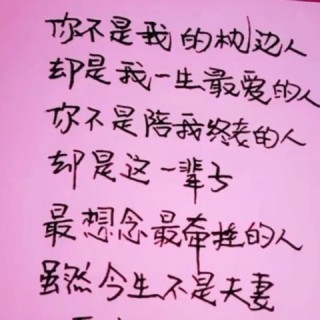 你不是我的枕边人
却是我一生最爱的人
你不是陪我终老的人
却是这一辈子
最想念最牵挂的人
虽然今生不是夫妻